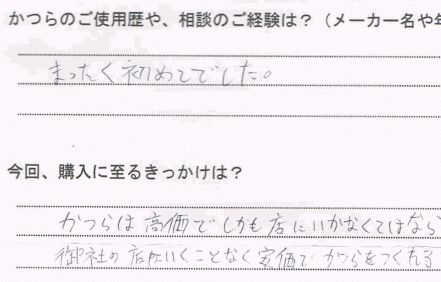 かつらのご使用歴や、相談のご経験は？（メーカー名や年
まったく初めてでした。
今回、購入に至るきっかけは？
かつらは高価でしかも店にいかなくてはなら
御社の店にいくことなく安価でかつらをつくれる